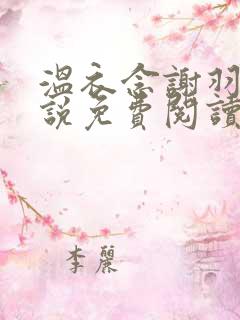 溫衣念謝羽
說免費閱讀
李麗